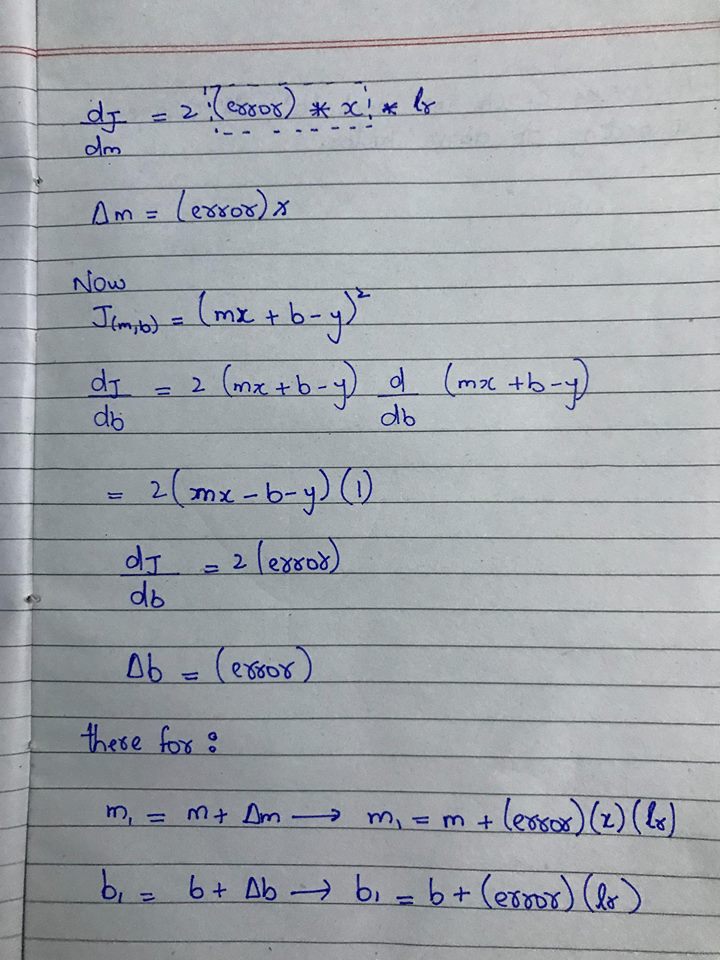 dJ/dm = 2 (error) * x * lr
Δm = (error)x
Now
J(m,b) = (mx + b - y)²
dJ/db = 2 (mx + b - y) d/db (mx + b - y)
= 2(mx - b - y)(1)
dJ/db = 2(error)
Δb = (error)
there for :
m₁ = m + Δm → m₁ = m + (error)(x)(lr)
b₁ = b + Δb → b₁ = b + (error)(lr)